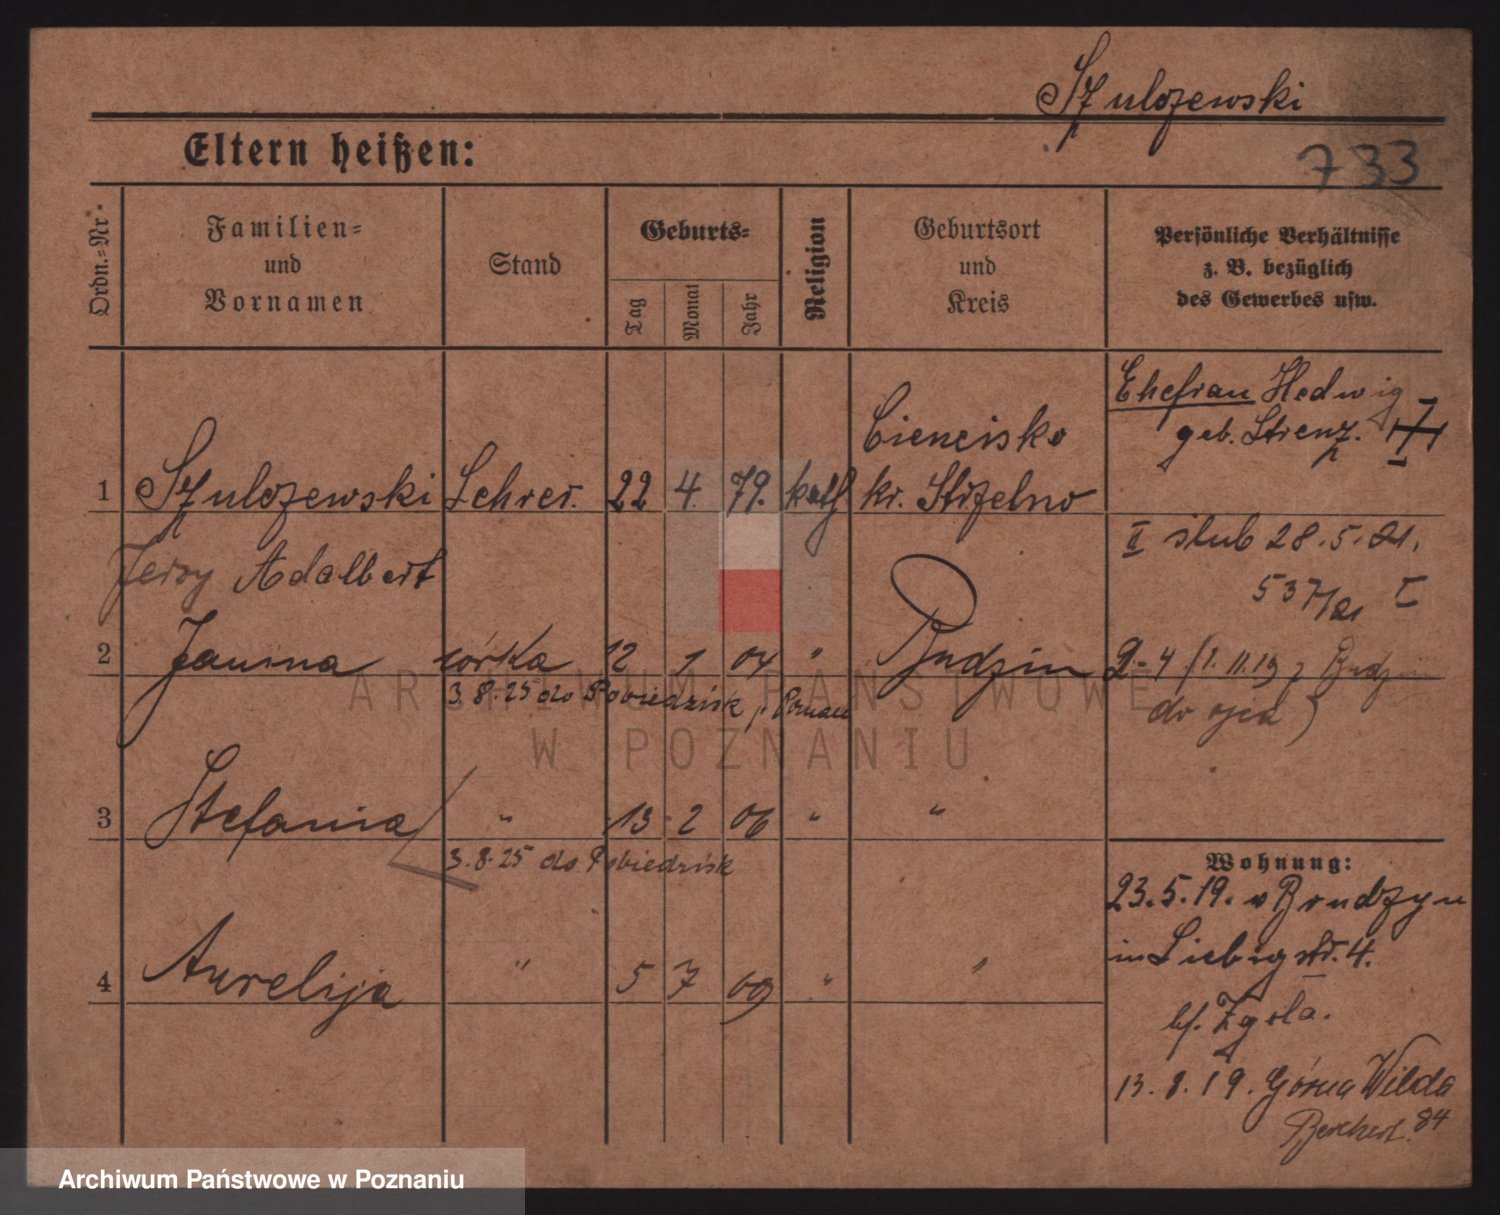 Szulczewski
Eltern heißen:
733
Ordn.=Nr.
Familien=
und
Vornamen
Stand
Geburts=
Tag
Monat
Jahr
Religion
Geburtsort
und
Kreis
Persönliche Verhältnisse
z. B. bezüglich
des Gewerbes usw.
Ehefrau Hedwig
geb. Strenz.
1 Szulczewski Lehrer. 22 4. 79. kath Ciencisko
kr. Strzelno
Jerzy Adalbert
II ślub 28.5.21.
537/21
2 Janina córka 12 1 04 " Budzin
2-4 (1.11.19 z Budzin
do ojca)
3.8.25 do Pobiedzisk p. Poznań
3 Stefania " 13 2 06 " "
3.8.25 do Pobiedzisk
4 Aurelija " 5 7 09 " "
Wohnung:
23.5.19. v Brudzyn
in Liebigstr. 4.
bf. Zgola.
13.8.19. Górna Wilda
84
ARCHIWUM PAŃSTWOWE
W POZNANIU
Archiwum Państwowe w Poznaniu